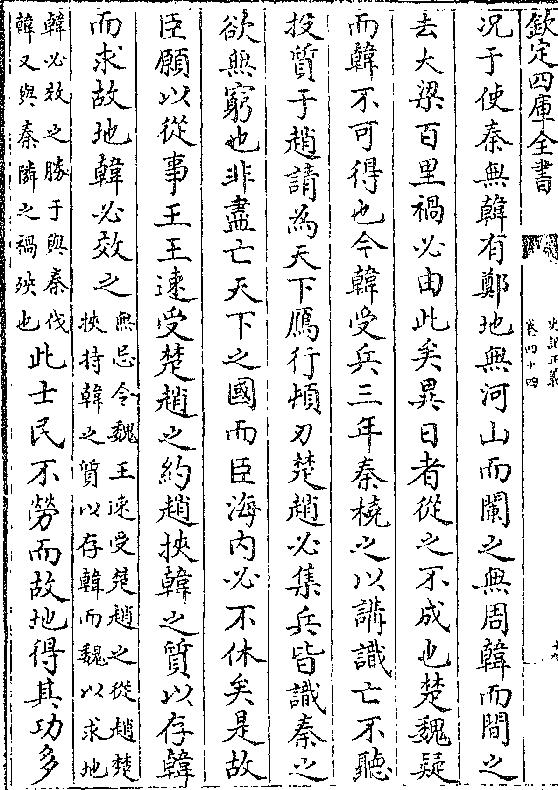 欽定四庫全書
史記正義
卷四十四
况于使秦無韓有鄭地無河山而闌之無周韓而間之
去大梁百里禍必由此矣異日者從之不成也楚魏疑
而韓不可得也今韓受兵三年秦橈之以講識亡不聽
投質于趙請為天下鴈行頓刃楚趙必集兵皆識秦之
欲無窮也非盡亡天下之國而臣海内必不休矣是故
臣願以從事王王速受楚趙之約趙挾韓之質以存韓
而求故地韓必效之
無忌令魏王速受楚趙之從趙楚
挾持韓之質以存韓而魏以求地
韓必效之勝于與秦伐
韓又與秦隣之禍殃也
此士民不勞而故地得其功多